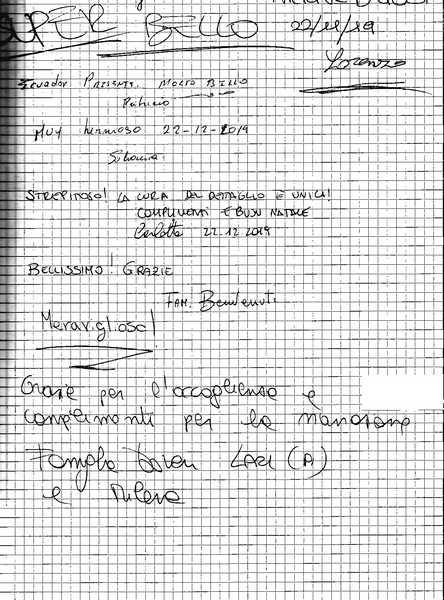 SUPER BELLO 22/12/19
Lorenzo
Ecuador Presente. Molto Bello
Patricio
Muy hermoso 22-12-2019
STREPITOSO! LA CURA DEL DETTAGLIO È UNICA!
COMPLIMENTI E BUON NATALE
Carlotta 22.12.2019
BELLISSIMO! GRAZIE
FAM. Benvenuti
Meraviglioso!
Grazie per l'accoglienza e
complimenti per la
Famiglia LARI (A)
e Milena